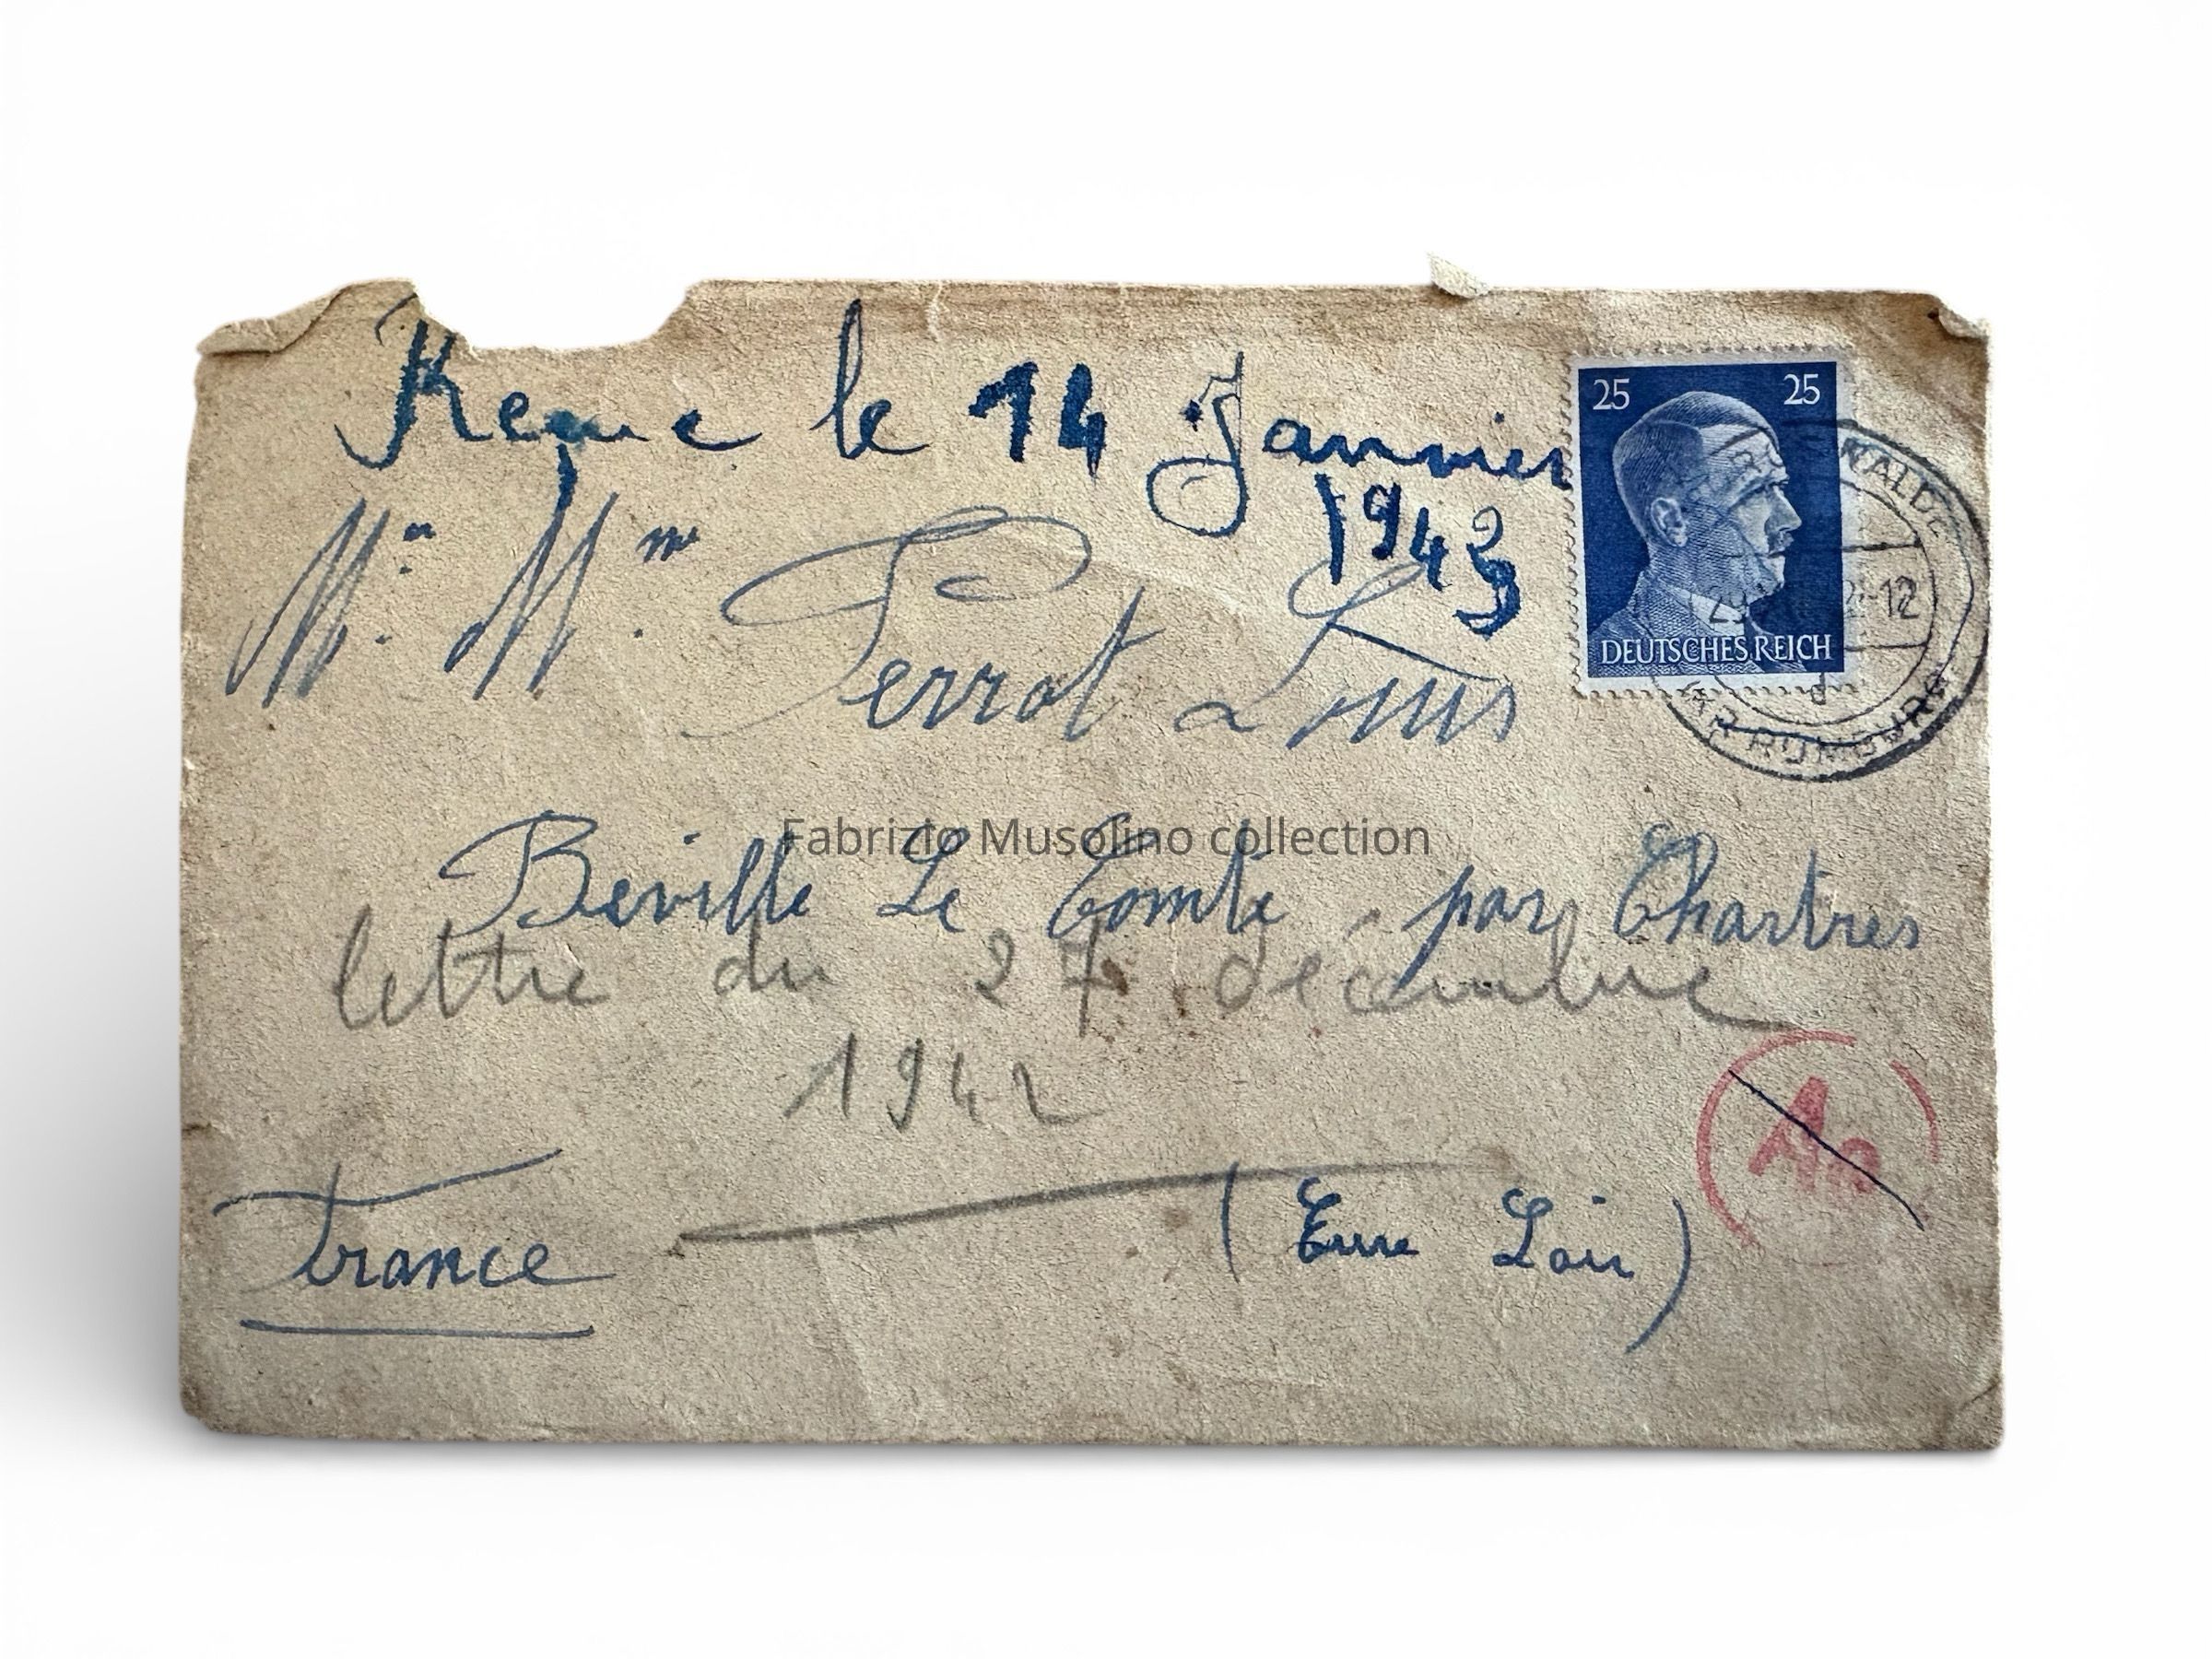 Reçue le 14 Janvier
1943
25 25
DEUTSCHES REICH
Mr. Mme. Perrot Louis
Fabrizio Musolino collection
Beville Le Comte par Chartres
lettre du 27 décembre
1942
France
(Eure Loir)